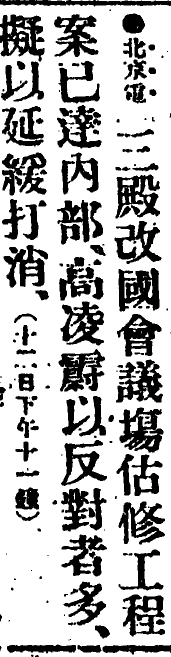 ●北京電 三殿改國會議場估修工程
案已達內部、高凌霨以反對者多、
擬以延緩打消、（十二日下午十一鐘）